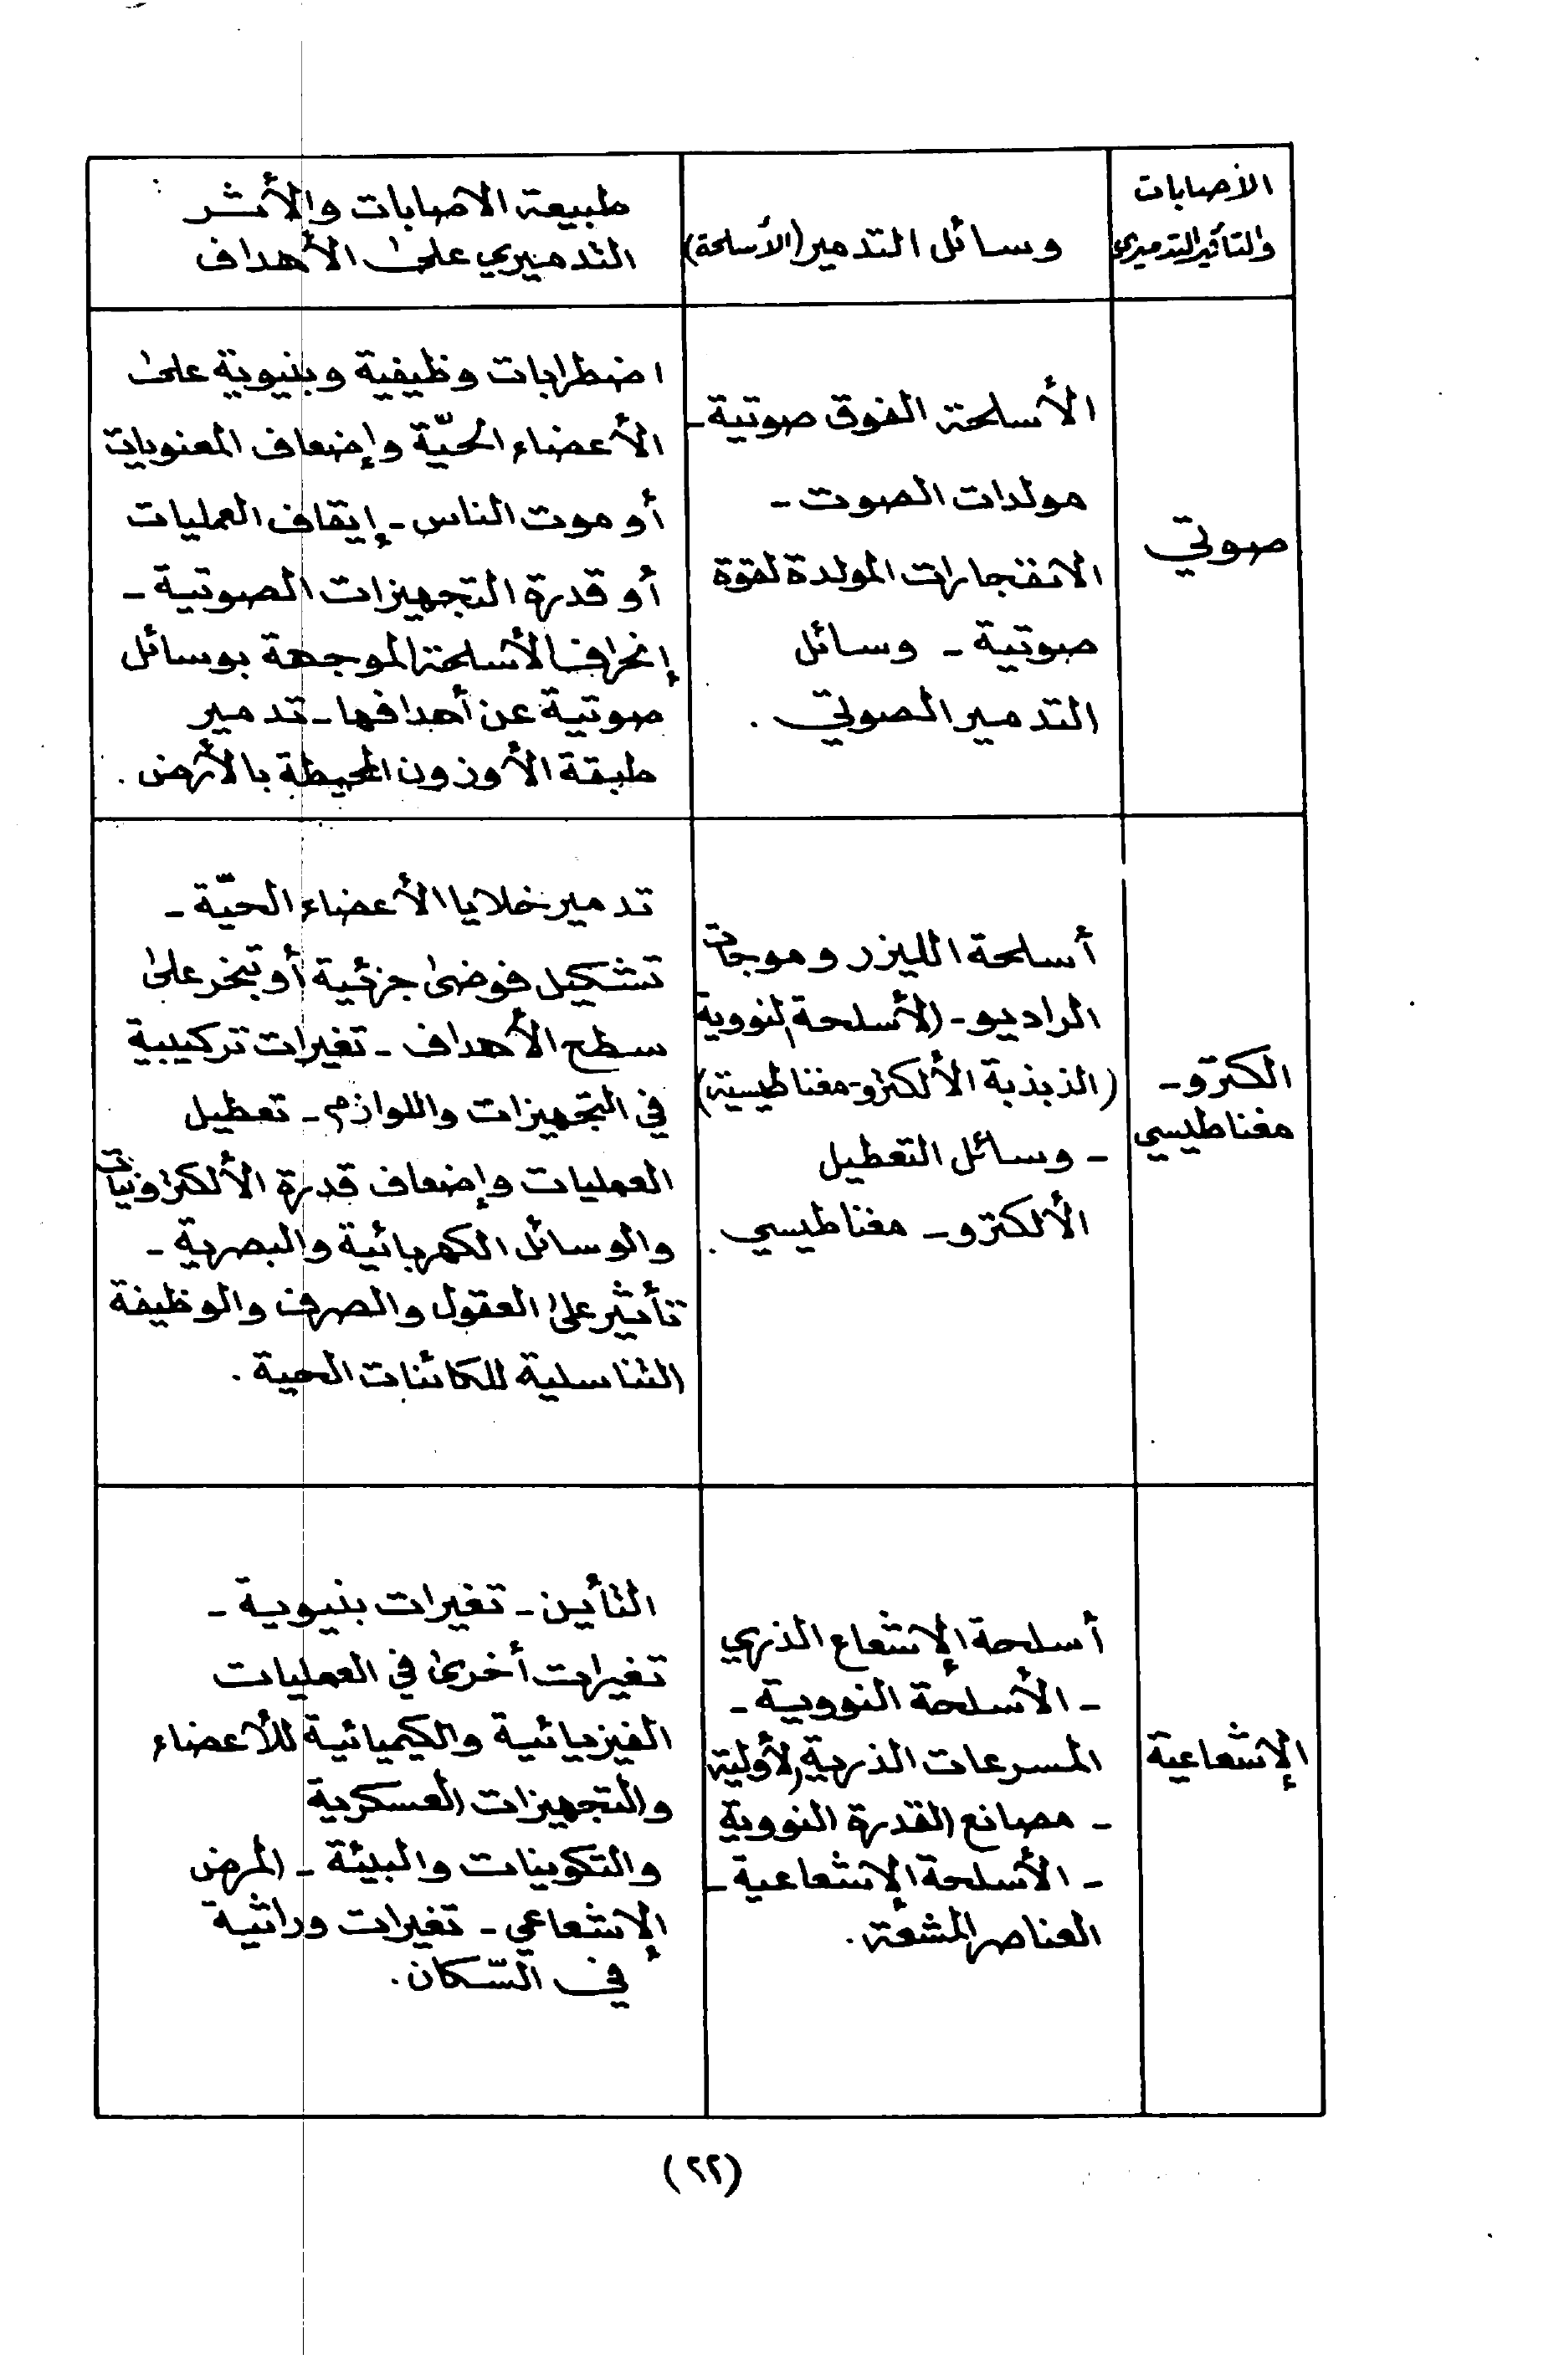 الأصابات
والتأثير التدميري
وسائل التدمير (الأسلحة)
طبيعة الاصابات والأثر
التدميري على الأهداف
صوتي
الأسلحة الفوق صوتية -
مولدات الصوت -
الانفجارات المولدة لقوة
صوتية - وسائل
التدمير الصوتي .
اضطرابات وظيفية وبنيوية على
الأعضاء الحيّة وإضعاف المعنويات
أو موت الناس - إيقاف العمليات
أو قدرة التجهيزات الصوتية -
إنحراف الأسلحة الموجهة بوسائل
صوتية عن أهدافها - تدمير
طبقة الأوزون المحيطة بالأرض .
الكترو -
مغناطيسي
أسلحة الليزر وموجات
الراديو - الأسلحة النووية
(الذبذبة الألكترو - مغناطيسية)
- وسائل التعطيل
الألكترو - مغناطيسي .
تدمير خلايا الأعضاء الحيّة -
تشكيل فوضى جزئية أو تبخر على
سطح الأهداف - تغيرات تركيبية
في التجهيزات واللوازم - تعطيل
العمليات وإضعاف قدرة الألكترونيات
والوسائل الكهربائية والبصرية -
تأثير على العقول والصرف والوظيفة
التناسلية للكائنات الحية .
الإشعاعية
أسلحة الإشعاع الذري
- الأسلحة النووية -
المسرعات الذرية الأولية
- مصانع القدرة النووية
- الأسلحة الإشعاعية -
العناصر المشعّة .
التأين - تغيرات بنيوية -
تغيرات أخرى في العمليات
الفيزيائية والكيميائية للأعضاء
والتجهيزات العسكرية
والتكوينات والبيئة - المرض
الإشعاعي - تغيرات وراثية
في السّكان .
(٢٢)